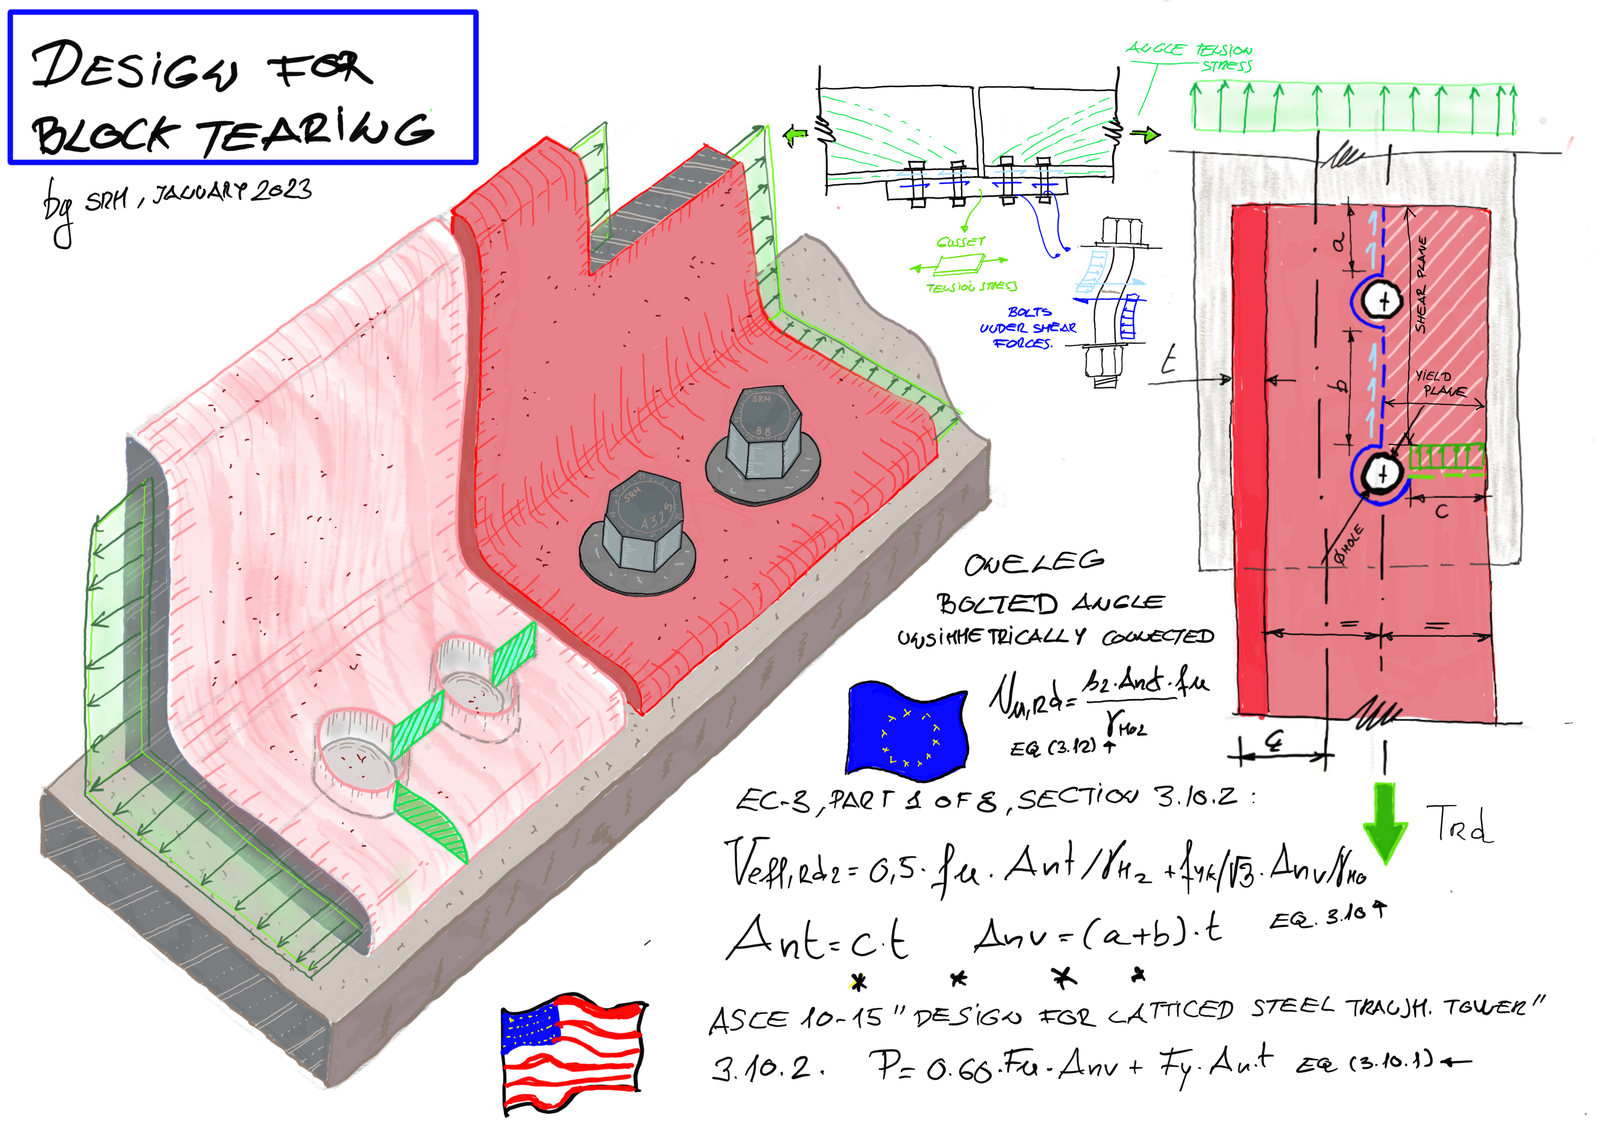 DESIGN FOR
BLOCK TEARING
by SRM, JANUARY 2023
ANGLE TENSION
STRESS
GUSSET
TENSION STRESS
BOLTS
UNDER SHEAR
FORCES.
SRM
8.8
SRM
A325
a
SHEAR PLANE
t
b
YIELD
PLANE
c
ØHOLE
=
=
TRd
ONE LEG
BOLTED ANGLE
UNSIMMETRICALLY CONNECTED
Nu,Rd= β2·Ant·fu
γM02
EQ (3.12) ↑
EC-3, PART 1 OF 8, SECTION 3.10.2:
Veff,Rd2 = 0,5·fu·Ant/γM2 + fyk/√3·Anv/γM0
EQ. 3.10 ↑
Ant= c·t Anv=(a+b)·t
* * * *
ASCE 10-15 "DESIGN FOR LATTICED STEEL TRANSM. TOWER"
3.10.2. P= 0.60·Fu·Anv + Fy·Ant EQ (3.10.1) ←